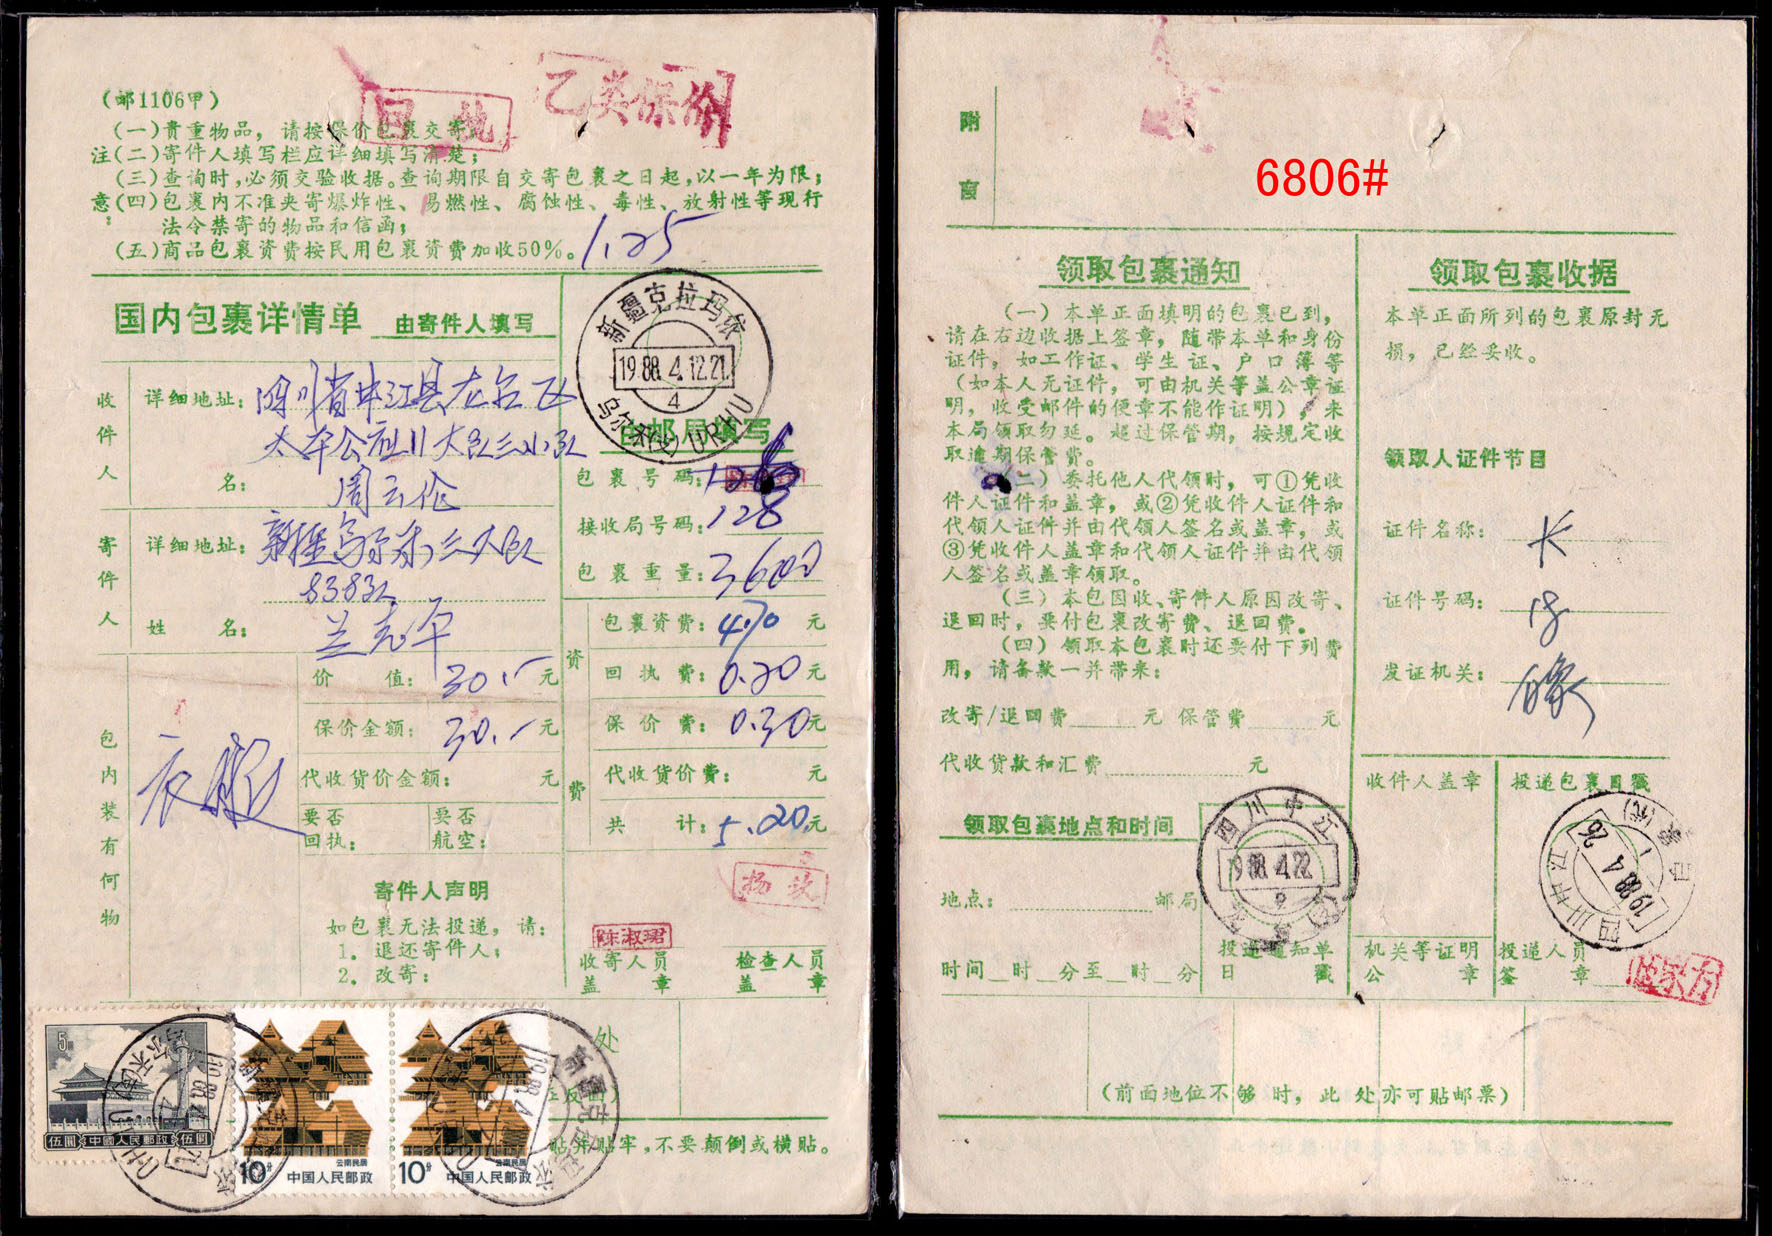 (邮1106甲)
回执
乙类保价
注意:
(一)貴重物品，请按保价包裹交寄；
(二)寄件人填写栏应详细填写清楚；
(三)查询时,必须交验收据。查询期限自交寄包裹之日起,以一年为限；
(四)包裹内不准夹寄爆炸性、易燃性、腐蚀性、毒性、放射性等现行
法令禁寄的物品和信函；
(五)商品包裹资费按民用包裹资费加收50%。
1.25
国内包裹详情单 由寄件人填写
新疆克拉玛依
1988.4.12.21
4
乌尔禾(1) URHU
由邮局填写
收件人
详细地址: 四川省中江县龙台区
太平公社11大队三小队
名: 周云伦
寄件人
详细地址: 新疆乌尔禾三大队
8383队
姓名: 兰克军
包裹号码:
接收局号码: 128
包裹重量: 3600
资费
包裹资费: 4.70 元
回执费: 0.20 元
保价费: 0.30 元
代收货价费: 元
共计: 5.20 元
包内装有何物
衣服
价值: 30.- 元
保价金额: 30.- 元
代收货价金额: 元
要否回执:
要否航空:
寄件人声明
如包裹无法投递，请:
1. 退还寄件人;
2. 改寄:
陈淑珺
收寄人员盖章
检查人员盖章
处
贴并贴牢,不要颠倒或横贴。
5
伍圆 中國人民郵政 伍圆
10分 云南民居 中国人民邮政
10分 云南民居 中国人民邮政
附言
6806#
领取包裹通知
(一)本单正面填明的包裹已到，
请在右边收据上签章，随带本单和身份
证件，如工作证、学生证、户口簿等
(如本人无证件，可由机关等盖公章证
明，收受邮件的便章不能作证明)，来
本局领取勿延。超过保管期，按规定收
取逾期保管费。
(二)委托他人代领时，可①凭收
件人证件和盖章，或②凭收件人证件和
代领人证件并由代领人签名或盖章，或
③凭收件人盖章和代领人证件并由代领
人签名或盖章领取。
(三)本包因收、寄件人原因改寄、
退回时，要付包裹改寄费、退回费。
(四)领取本包裹时还要付下列费
用，请备款一并带来:
改寄/退回费 元 保管费 元
代收货款和汇费 元
领取包裹地点和时间
地点: 邮局
时间 时 分至 时 分
四川中江
1988.4.22
投递通知单日戳
领取包裹收据
本单正面所列的包裹原封无
损，已经妥收。
领取人证件节目
证件名称:
证件号码:
发证机关:
收件人盖章
投递包裹日戳
四川中江
1988.4.26
1
机关等证明公章
投递人员签章
(前面地位不够时，此处亦可贴邮票)